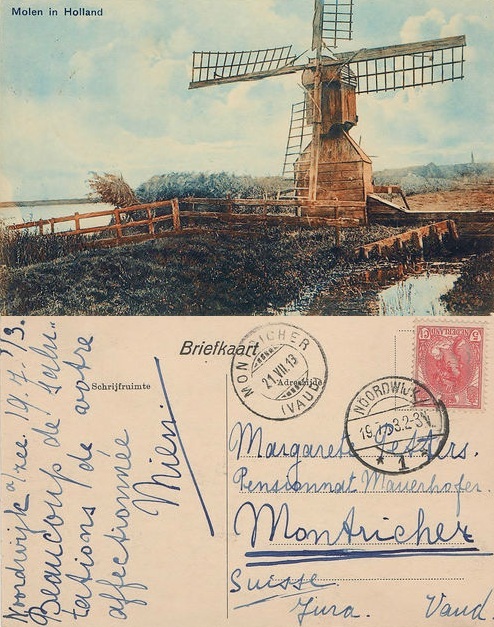 Molen in Holland
Briefkaart
Schrijfruimte
Adreszijde
Noordwijk a/zee. 19.7.'13.
Beaucoup de salu-
tations de votre
affectionnée
Mien.
MONTRICHER
21.VII.13
(VAUD)
NOORDWIJK
19.7.13.2-3N
1
Margarete Petters.
Pensionnat Mauerhofer.
Montricher
Suisse
Jura. Vaud